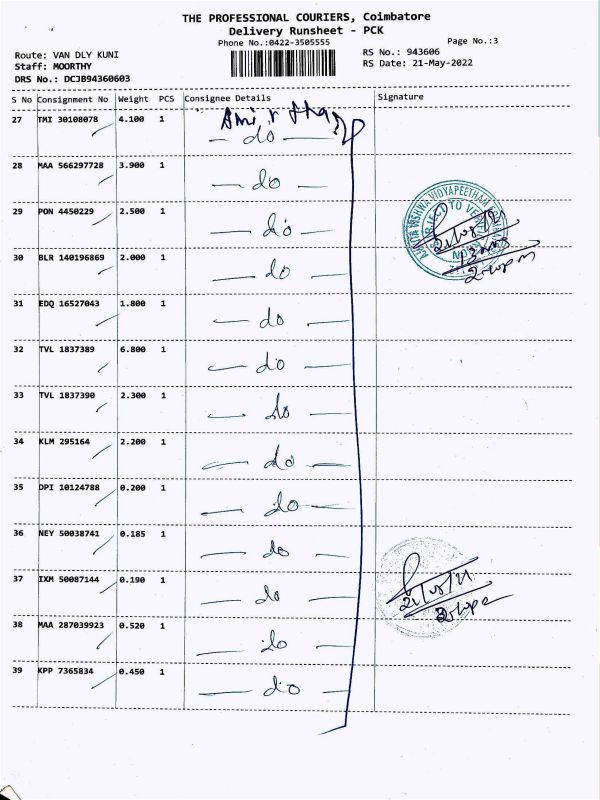 THE PROFESSIONAL COURIERS, Coimbatore
Delivery Runsheet - PCK
Phone No.:0422-3505555
Page No.:3
Route: VAN DLY KUNI
RS No.: 943606
Staff: MOORTHY
RS Date: 21-May-2022
DRS No.: DCJB94360603
S No Consignment No Weight PCS Consignee Details Signature
27 TMI 30108078 4.100 1 Amirtha
do
28 MAA 566297728 3.900 1 do
29 PON 4450229 2.500 1 do
30 BLR 140196869 2.000 1 do
31 EDQ 16527043 1.800 1 do
32 TVL 1837389 6.800 1 do
33 TVL 1837390 2.300 1 do
34 KLM 295164 2.200 1 do
35 DPI 10124788 0.200 1 do
36 NEY 50038741 0.185 1 do
37 IXM 50087144 0.190 1 do
38 MAA 287039923 0.520 1 do
39 KPP 7365834 0.450 1 do